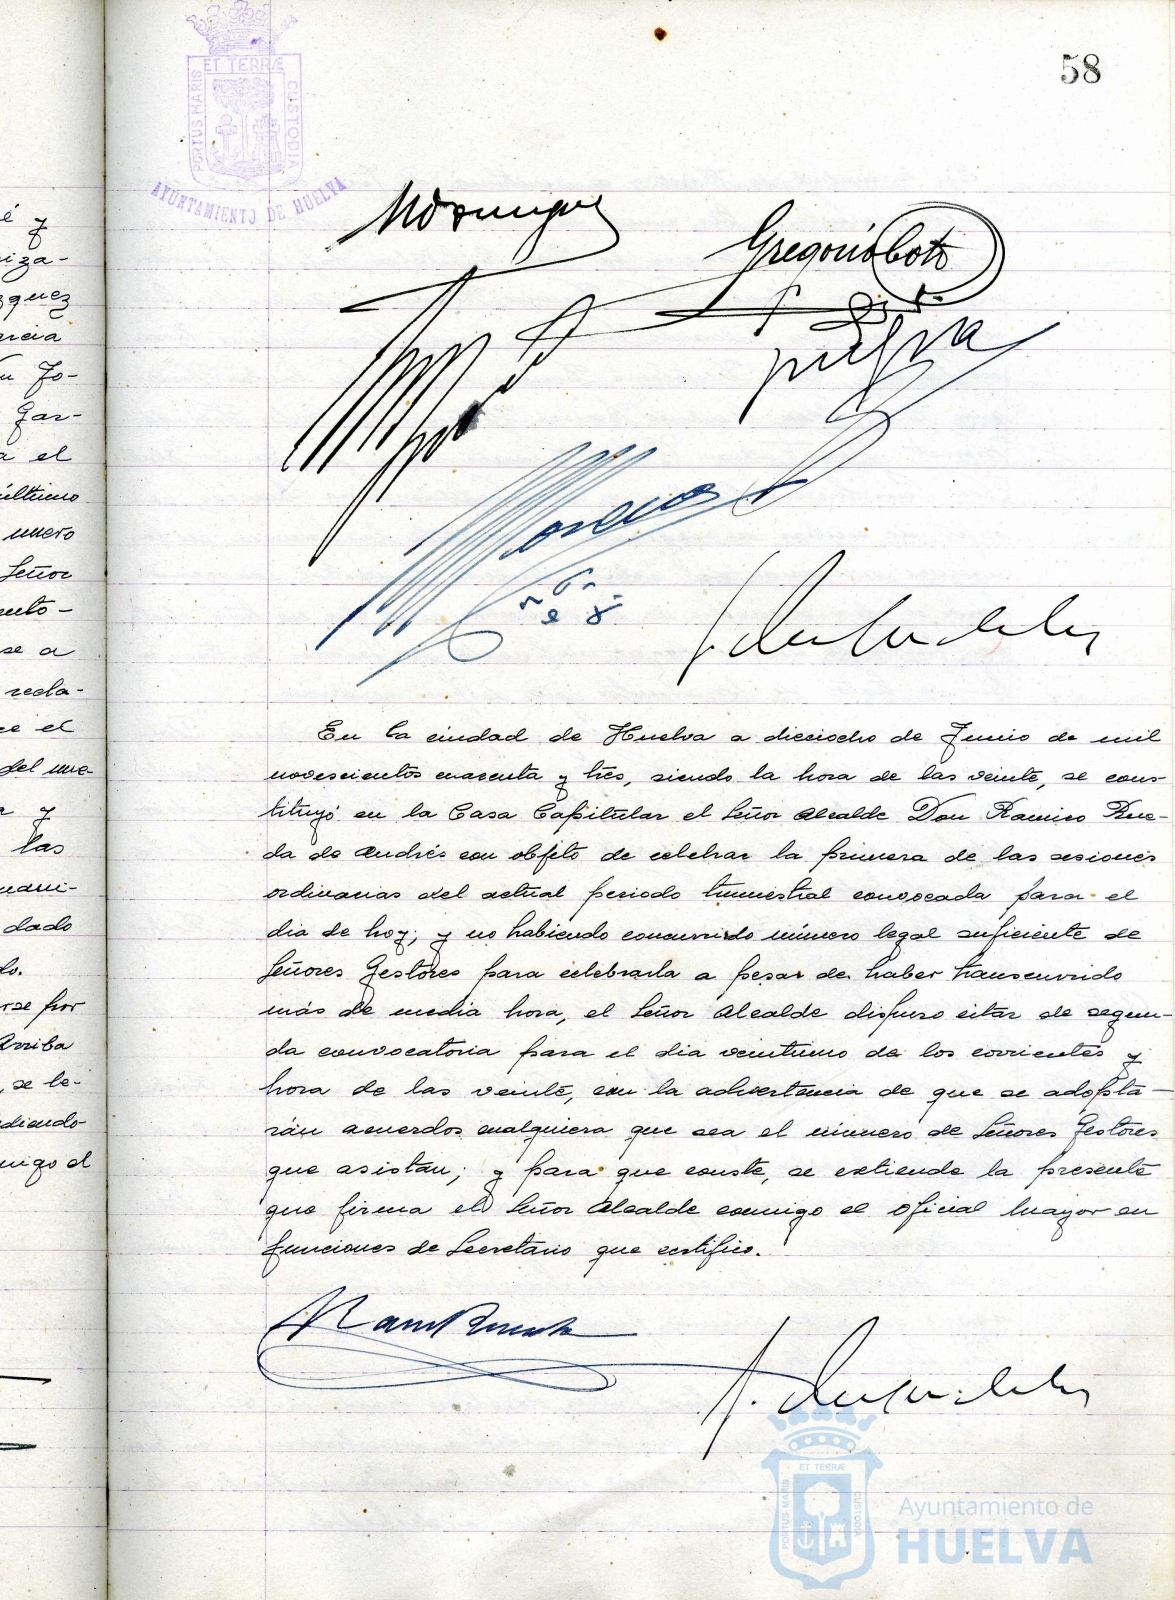 58
ET TERRÆ
PORTUS MARIS
CUSTODIA
AYUNTAMIENTO DE HUELVA
é y
iza-
zquez
arcia
Jo-
Gar-
a el
último
Señor
se a
recla-
ce el
del
y
las
dado
do.
rse por
Arriba
, se le-
diendo
migo el
Gregorio Coto
Moreno
En la ciudad de Huelva a dieciocho de Junio de mil
novescientos cuarenta y tres, siendo la hora de las veinte, se cons-
tituyó en la Casa Capitular el Señor Alcalde Don Ramiro Rue-
da de Andrés con objeto de celebrar la primera de las sesiones
ordinarias del actual periodo trimestral convocada para el
dia de hoy; y no habiendo concurrido número legal suficiente de
Señores Gestores para celebrarla a pesar de haber transcurrido
más de media hora, el Señor Alcalde dispuso citar de segun-
da convocatoria para el dia veintiuno de los corrientes y
hora de las veinte, con la advertencia de que se adopta-
rán acuerdos cualquiera que sea el número de Señores Gestores
que asistan; y para que conste, se extiende la presente
que firma el Señor Alcalde conmigo el Oficial Mayor en
funciones de Secretario que certifico.
ET TERRÆ
PORTUS MARIS
CUSTODIA
Ayuntamiento de
HUELVA